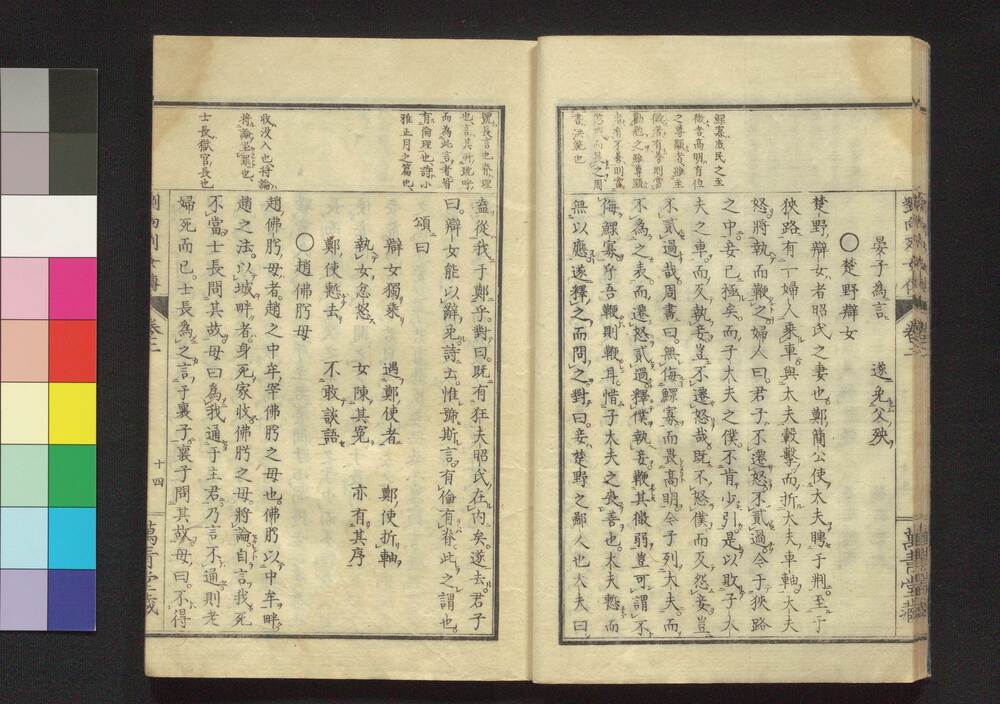 晏子為言　遂免父殃
〇楚野辯女
楚野辯女者昭氏之妻也鄭簡公使大夫聘于荆至于
狹路有一婦人乘車與大夫轂擊而折大夫車軸大夫
怒將執而鞭之婦人曰君子不遷怒不貳過今于狹路
之中妾已極矣而子大夫之僕不肯少引是以敗子大
夫之車而反執妾豈不遷怒哉既不怒僕而反怨妾豈
不貳過哉周書曰無侮鰥寡而畏高明今子列大夫而
不為之表而遷怒貳過釋僕執妾鞭其微弱豈可謂不
侮鰥寡乎吾鞭則鞭耳惜子大夫之喪善也大夫慙而
無以應遂釋之而問之對曰妾楚野之鄙人也大夫曰
鰥寡庶民之至
微者高明有位
之尊顯者雖至
書洪範也
盍從我于鄭乎對曰既有狂夫昭氏在內矣遂去君子
曰辯女能以辭免詩云惟號斯言有倫有脊此之謂也
頌曰
辯女獨乘　遇鄭使者　鄭使折軸
執女忿怒　女陳其寃　亦有其序
鄭使慙去　不敢談語
〇趙佛肸母
趙佛肸母者趙之中牟宰佛肸之母也佛肸以中牟畔
趙之法以城畔者身死家收佛肸之母將論自言我死
不當士長問其故母曰為我通于主君乃言不通則老
婦死而已士長為之言于襄子襄子問其故母曰不得
號長言也脊理
也言其所號呼
而為此言者皆
有倫理也詩小
雅正月之篇也
收没入也将論
将論坐罪也
士長獄官長也
十四